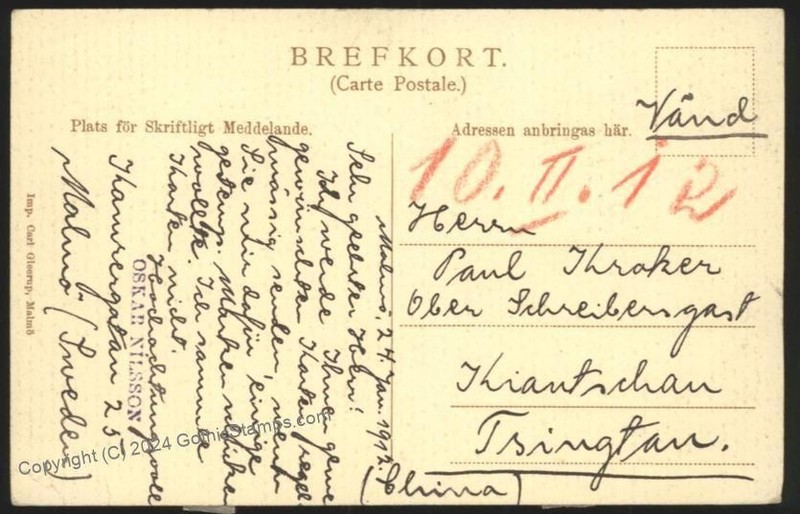 BREFKORT.
(Carte Postale.)
Plats för Skriftligt Meddelande.
Adressen anbringas här.
Vänd
10. II. 12
Herrn
Paul Kroker
Ober Schreibersgast
Kiautschau
Tsingtau.
(China)
Malmö, 24. Jan. 1912.
Sehr geehrter Herr!
Ich werde Ihnen gerne
gewünschten Karten regel-
mässig senden, wenn
Sie mir dafür einige
gestemp. Marken schicken
wollte. Ich sammle
Karten nicht.
Hochachtungsvoll
OSKAR NILSSON
Kamrergatan 25
Malmö (Sweden)
Imp. Carl Gleerup, Malmö
Copyright (C) 2024 GothicStamps.com